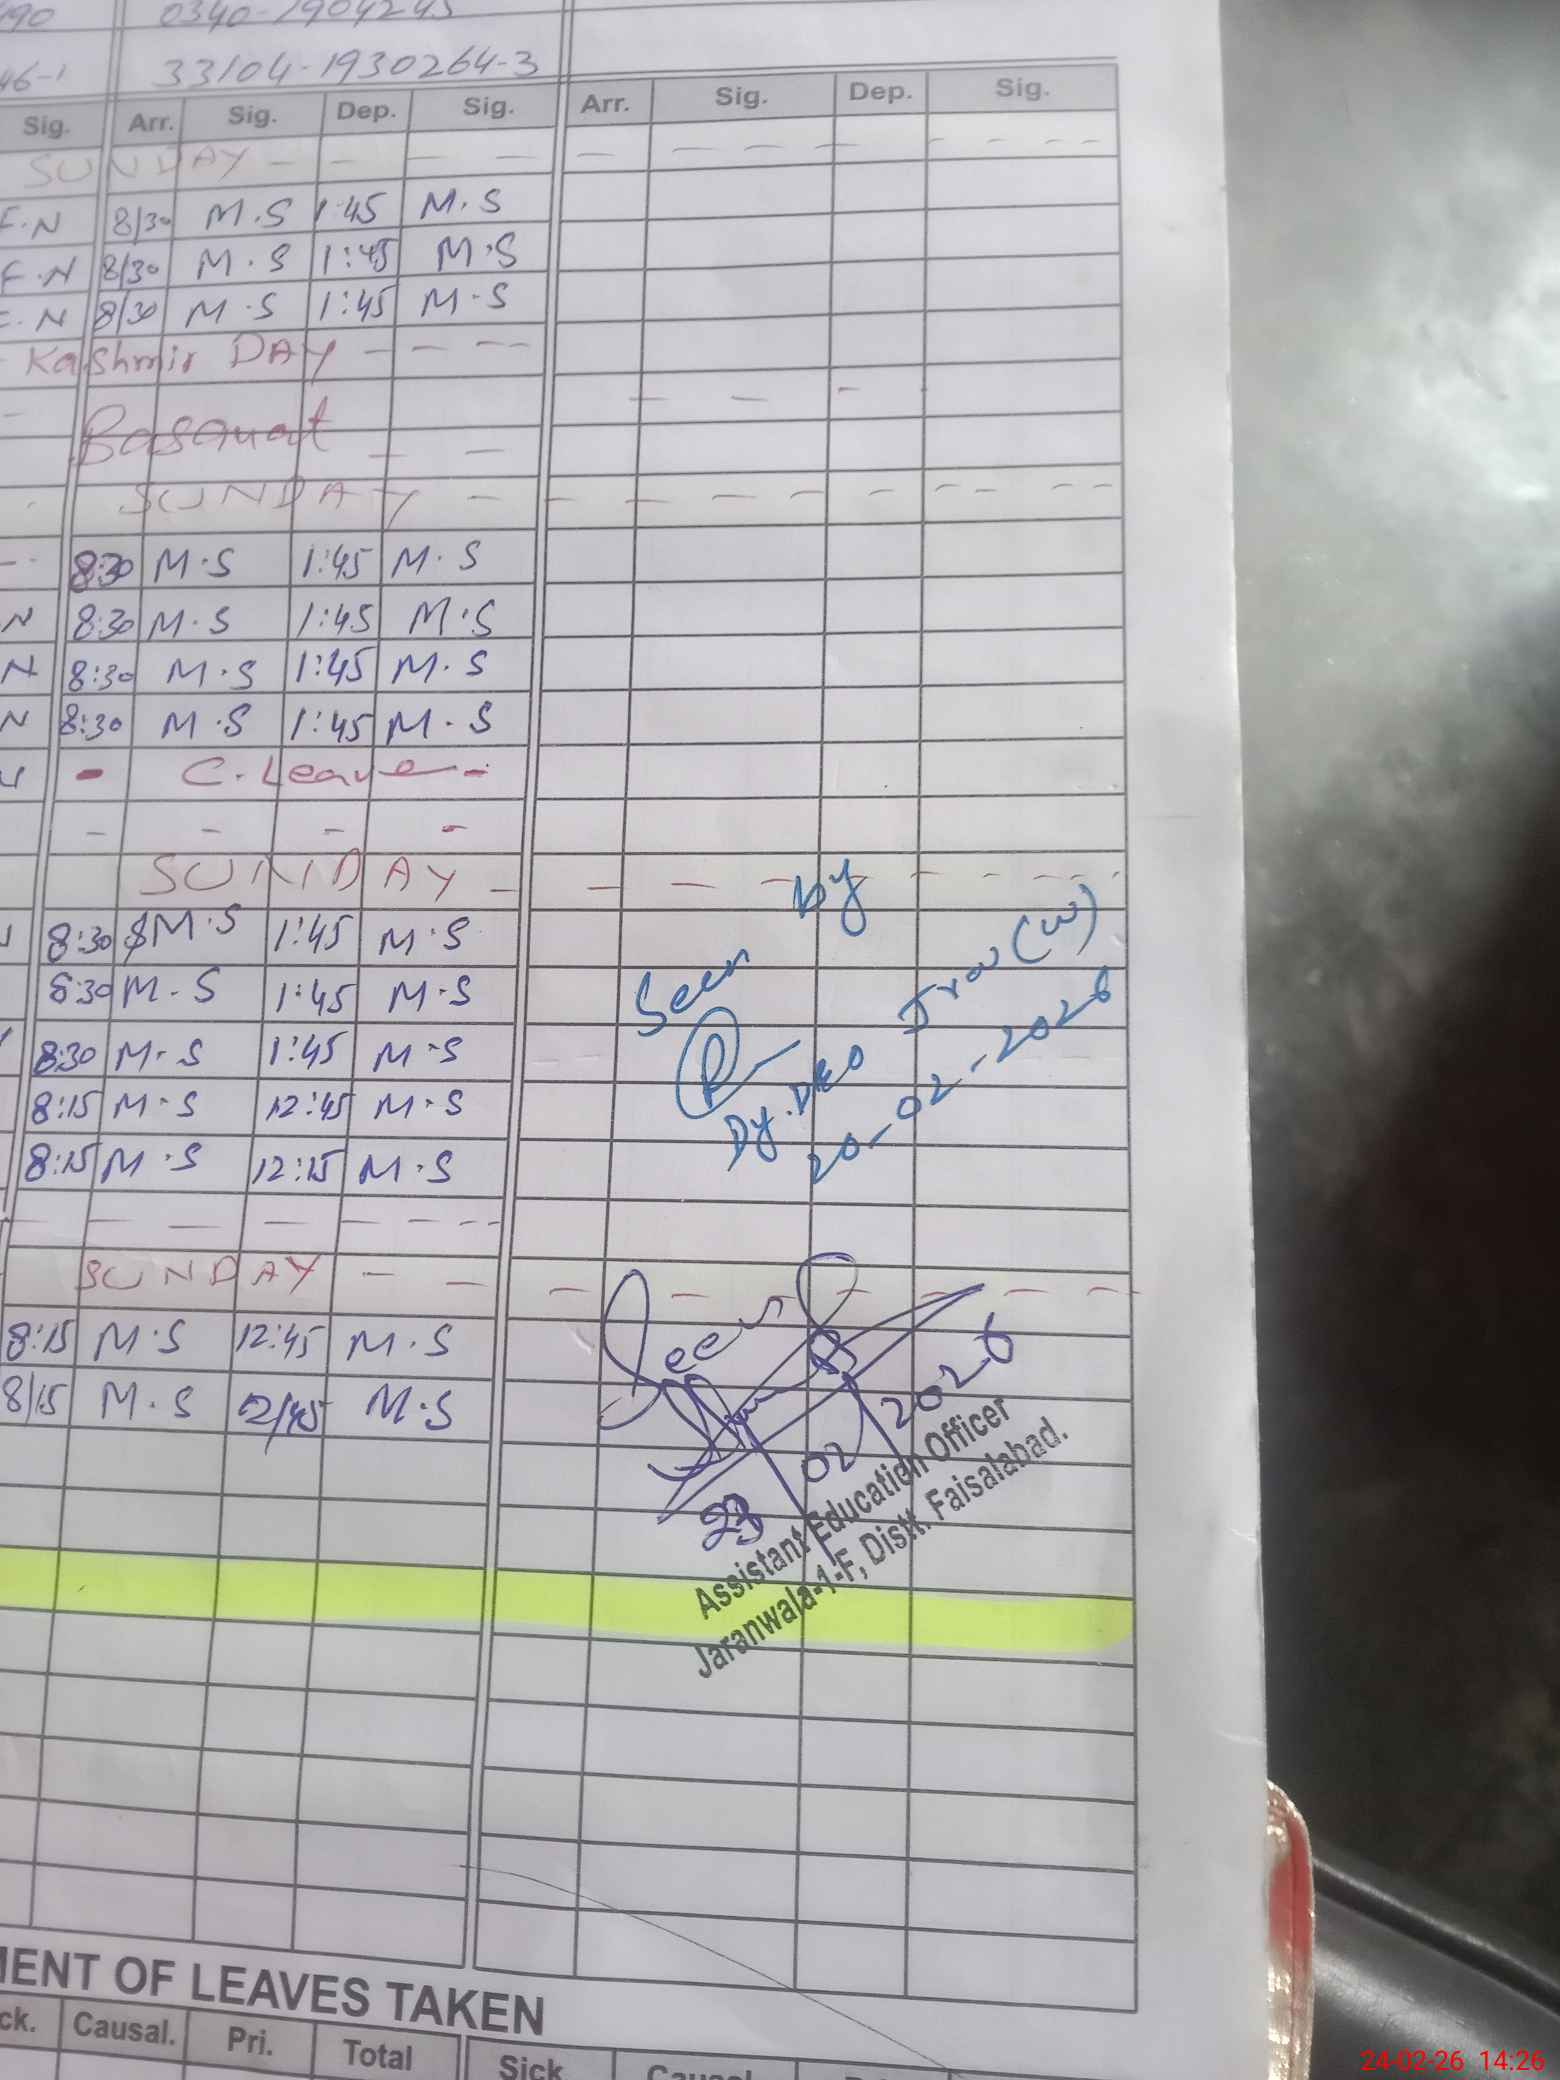 0340-1904245
46-1 33104-1930264-3
Sig. Arr. Sig. Dep. Sig. Arr. Sig. Dep. Sig.
SUNDAY - - - - - - - - - - - - -
F.N 8/30 M.S 1:45 M.S
F.N 8/30 M.S 1:45 M.S
F.N 8/30 M.S 1:45 M.S
- Kashmir DAY - - - -
Basanat
SUNDAY - - - - - - - - - -
8:30 M.S 1:45 M.S
N 8:30 M.S 1:45 M.S
N 8:30 M.S 1:45 M.S
N 8:30 M.S 1:45 M.S
- C. Leave -
- - - -
SUNDAY - - - - - - - - -
8:30 M.S 1:45 M.S
8:30 M.S 1:45 M.S
8:30 M.S 1:45 M.S
8:15 M.S 12:45 M.S
8:15 M.S 12:15 M.S
Seen by
Dy.DEO (W)
20-02-2026
- - - - - - - -
SUNDAY - - - - - - - -
8:15 M.S 12:45 M.S
8/15 M.S 12/45 M.S
Seen
23 02 2026
Assistant Education Officer
Jaranwala-1-F, Distt. Faisalabad.
MENT OF LEAVES TAKEN
ck. Causal. Pri. Total Sick Causal
24-02-26 14:26